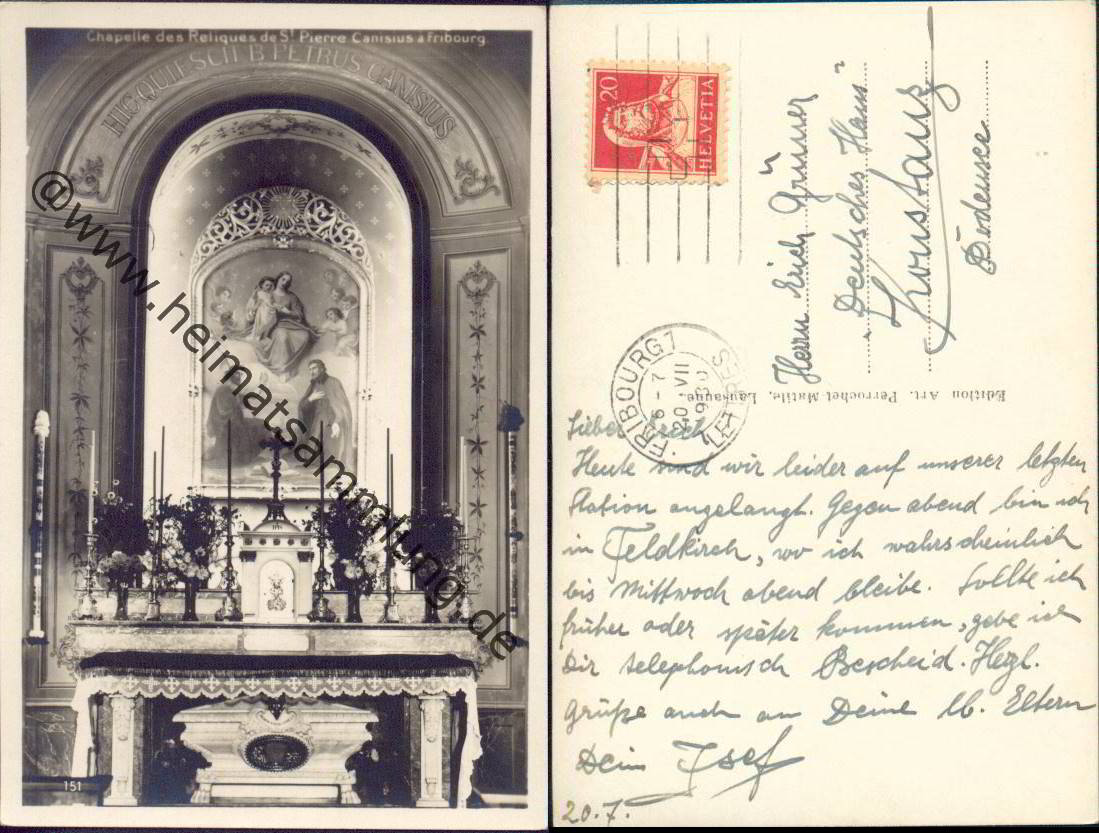 Chapelle des Reliques de St Pierre Canisius à Fribourg.
HIC QUIESCIT B. PETRUS CANISIUS
151
@www.heimatsammlung.de
20
HELVETIA
FRIBOURG 1
20 VII
1930
Herrn Erich Grüner
„Deutsches Haus"
Konstanz
Bodensee
Edition Art. Perrochet-Matile, Lausanne.
Lieber Erich
Heute sind wir leider auf unserer letzten
Station angelangt. Gegen abend bin ich
in Feldkirch, wo ich wahrscheinlich
bis Mittwoch abend bleibe. Sollte ich
früher oder später kommen, gebe ich
Dir telephonisch Bescheid. Herzl.
Grüße auch an Deine lb. Eltern
Dein Josef
20.7.